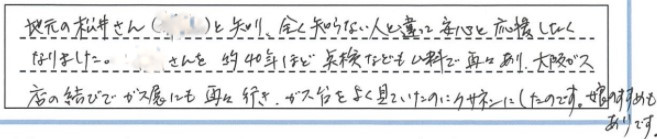 地元の松井さん( )と知り、全く知らない人と違って安心と応援したく
なりました。 さんを約40年ほど 英検なども 料で再々あり、大阪ガス
店の結びでガス展にも再々行き、ガス台をよく見ていたのにクサネンにしたのです。娘のすすめも
ありです。